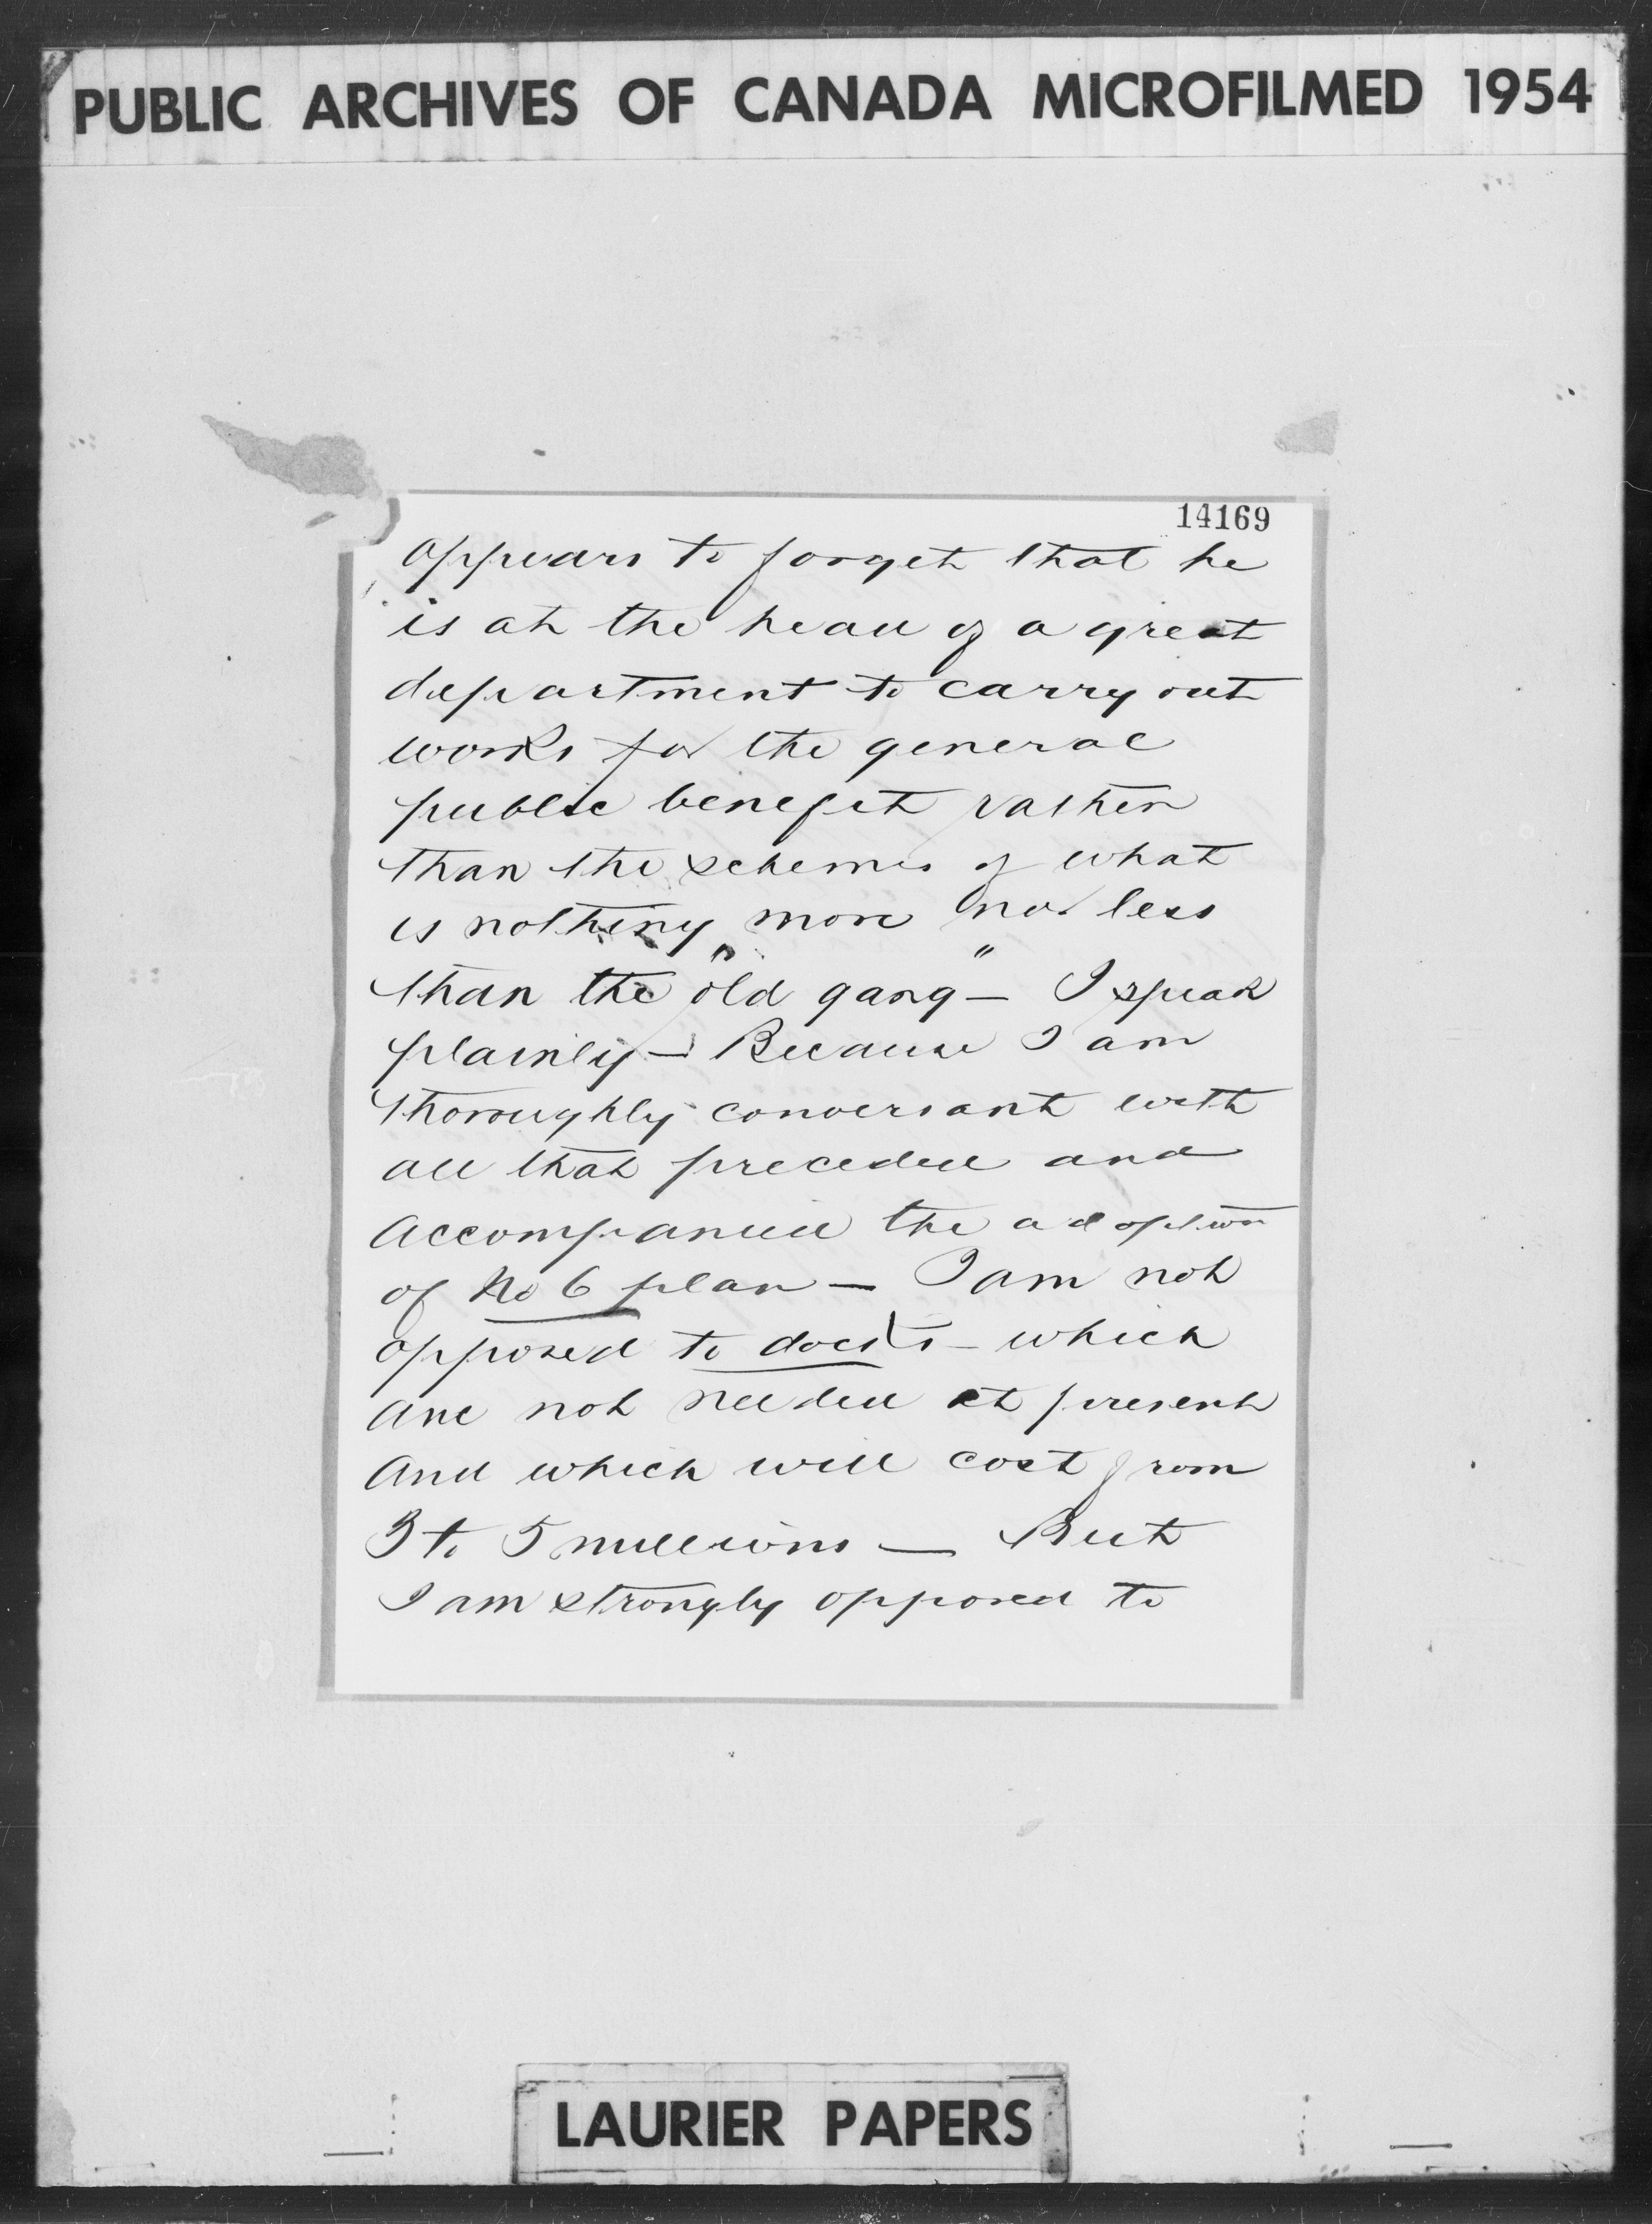 PUBLIC ARCHIVES OF CANADA MICROFILMED 1954
14169
appears to forget that he
is at the head of a great
department to carry out
works for the general
public benefit rather
than the schemes of what
is nothing more nor less
than the "old gang" — I speak
plainly — Because I am
thoroughly conversant with
all that preceded and
accompanied the adoption
of No 6 plan — I am not
opposed to docks — which
are not needed at present
and which will cost from
3 to 5 millions — But
I am strongly opposed to
LAURIER PAPERS